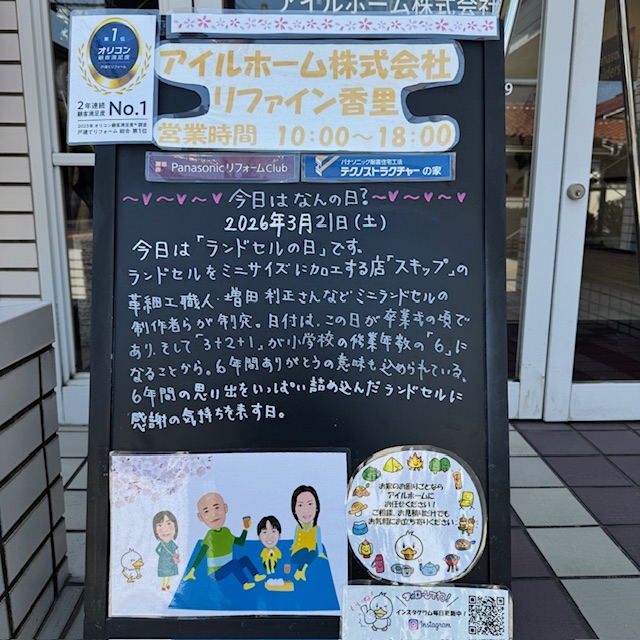 アイルホーム株式会社
第1位
オリコン
顧客満足度
戸建てリフォーム
2年連続
顧客満足度
No.1
2025年 オリコン顧客満足度®調査
戸建てリフォーム 総合 第1位
アイルホーム株式会社
リファイン香里
営業時間 10:00〜18:00
Panasonic リフォーム Club
パナソニック耐震住宅工法
テクノストラクチャーの家
〜♥〜♥〜♥〜今日はなんの日?〜♥〜♥〜♥〜
2026年3月21日(土)
今日は「ランドセルの日」です。
ランドセルをミニサイズに加工する店「スキップ」の
革細工職人・増田利正さんなどミニランドセルの
制作者らが制定。日付は、この日が卒業式の頃で
あり、そして「3+2+1」が小学校の修業年数の「6」に
なることから。6年間ありがとうの意味も込められている。
6年間の思い出をいっぱい詰め込んだランドセルに
感謝の気持ちを表す日。
お家のお困りごとなら
アイルホームに
お任せください!
ご相談、お見積りだけでも
お気軽にお立ち寄りください
インスタグラム毎日更新中!
Instagram